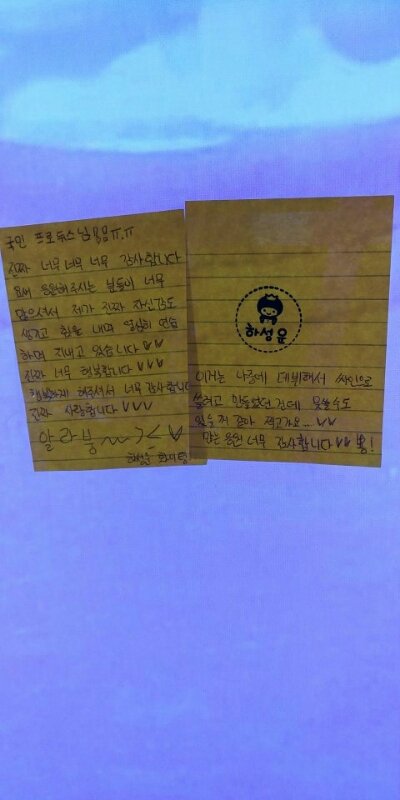 국민 프로듀스님 ㅠ.ㅠ
진짜 너무 너무 너무 감사합니다
요새 응원해주시는 분들이 너무
많으셔서 제가 진짜 자신감도
생기고 힘을 내며 열심히 연습
하며 지내고 있습니다 ♡♡
진짜 너무 행복합니다 ♡♡♡
행복하게 해주셔서 너무 감사합니다
진짜 사랑합니다 ♡♡♡
알라븅~~ >_< ♡
하성운 화이팅
하성운
이거는 나중에 데뷔해서 싸인으로
쓸려고 만들었던 건데 못쓸수도
있을 거 같아 적고가요...♡♡
많은 응원 너무 감사합니다 ♡♡ 뿅!